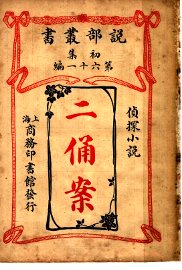 說部叢書
初集
第六十一編
偵探小說
二俑案
上海
商務印書館發行